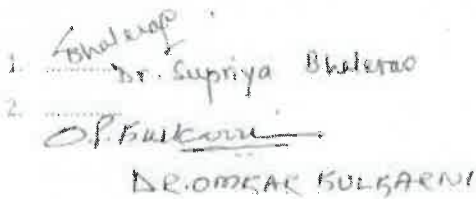 Bhalerao
1. ........ Dr. Supriya Bhalerao
2. ........
O.P. Kulkarni
DR. OMKAR KULKARNI